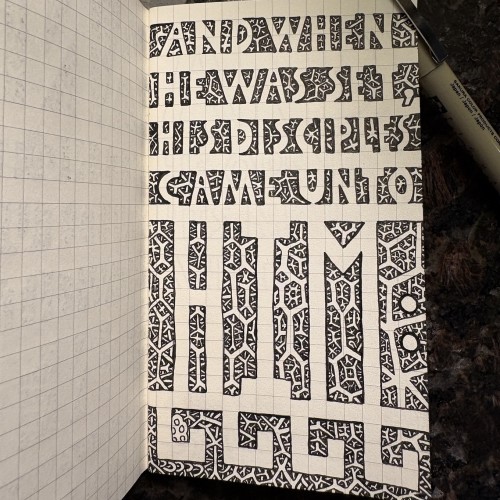 AND WHEN
HE WAS SET,
HIS DISCIPLES
CAME UNTO
HIM: